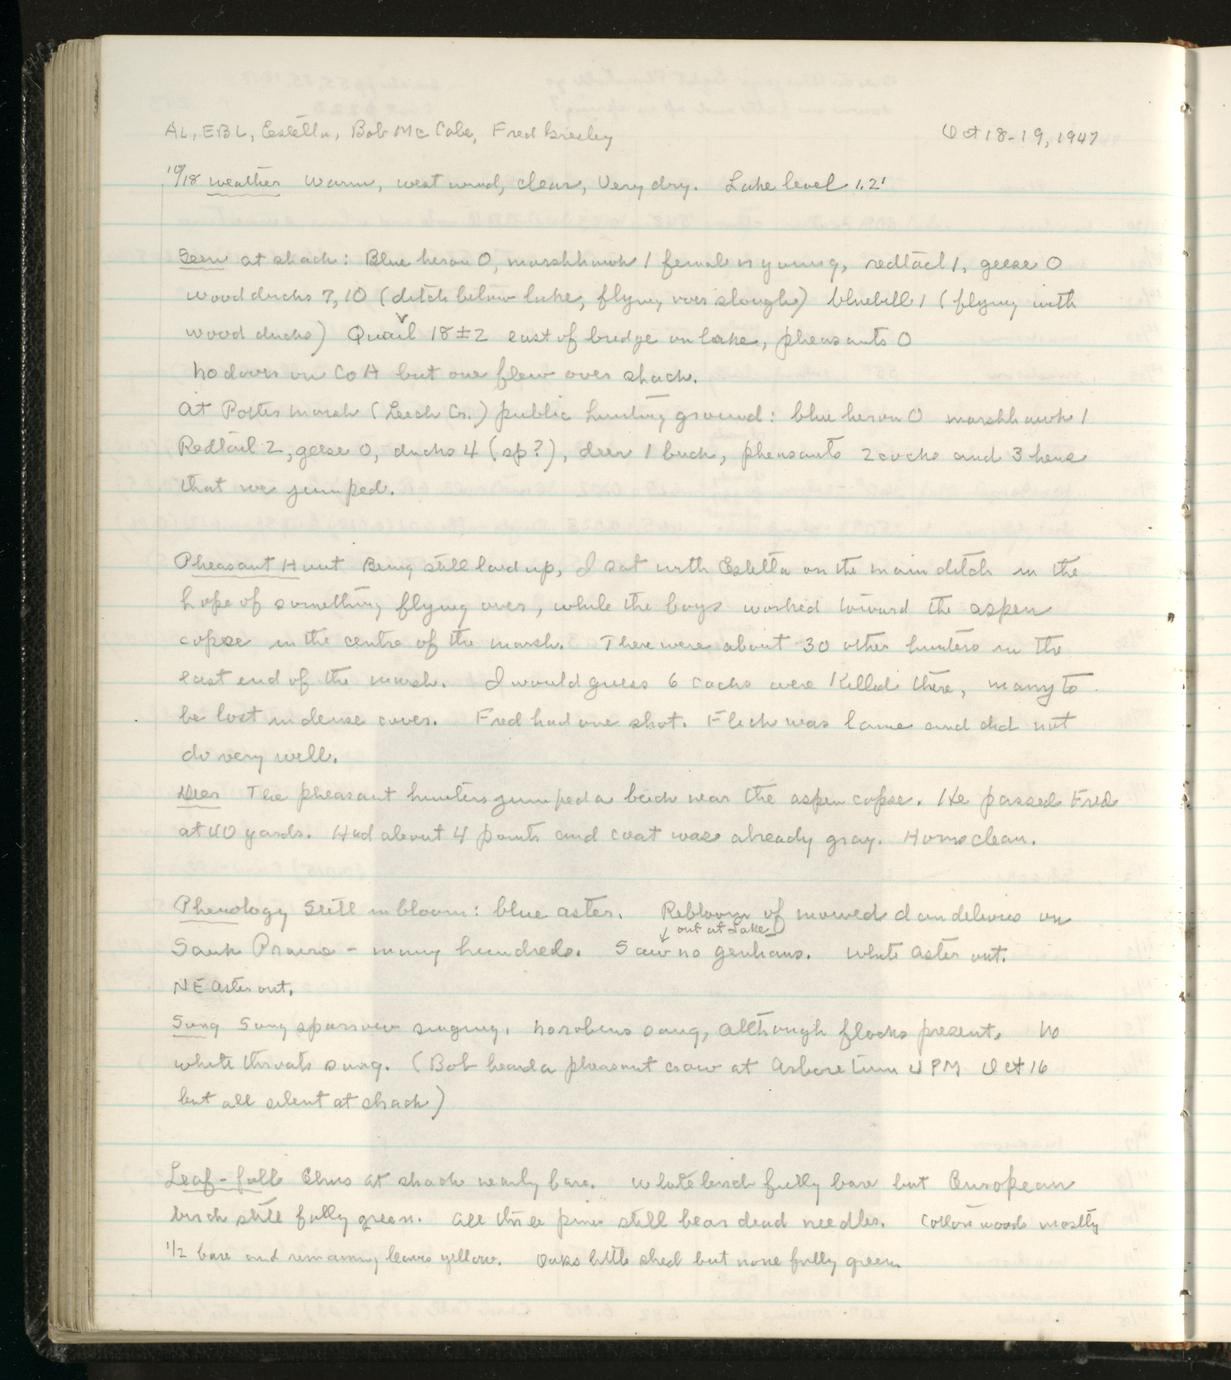 AL, EBL, Estella, Bob McCabe, Fred Greeley Oct 18-19, 1947
10/18 weather Warm, west wind, clear, Very dry. Lake level 1.2'
Seen at shack: Blue heron 0, marshhawk 1 female or young, redtail 1, geese 0
wood ducks 7, 10 (ditch below lake, flying over slough) bluebill 1 (flying with
wood ducks) Quail 18±2 east of bridge on lake, pheasants 0
No doves on Co A but one flew over shack.
At Potters marsh (Leech Cr.) public hunting ground: blue heron 0 marshhawk 1
Redtail 2, geese 0, ducks 4 (sp?), deer 1 buck, pheasants 2 cocks and 3 hens
that we jumped.
Pheasant Hunt Being still laid up, I sat with Estella on the main ditch in the
hope of something flying over, while the boys worked toward the aspen
copse in the centre of the marsh. There were about 30 other hunters in the
east end of the marsh. I would guess 6 cocks were killed there, many to
be lost in dense cover. Fred had one shot. Flick was lame and did not
do very well.
Deer The pheasant hunters jumped a buck near the aspen copse. He passed Fred
at 40 yards. Had about 4 points and coat was already gray. Horns clean.
Phenology Still in bloom: blue aster. Rebloom of mowed dandelions on
out at Lake
Sauk Prairie - many hundreds. Saw no gentians. White aster out.
NE Aster out.
Song Song sparrow singing. No robins sang, although flocks present. No
white throats sung. (Bob heard a pheasant crow at Arboretum 4 PM Oct 16
but all silent at shack)
Leaf-fall Elms at shack nearly bare. White birch fully bare but European
birch still fully green. All three pines still bear dead needles. Cottonwoods mostly
1/2 bare and remaining leaves yellow. Oaks little shed but none fully green